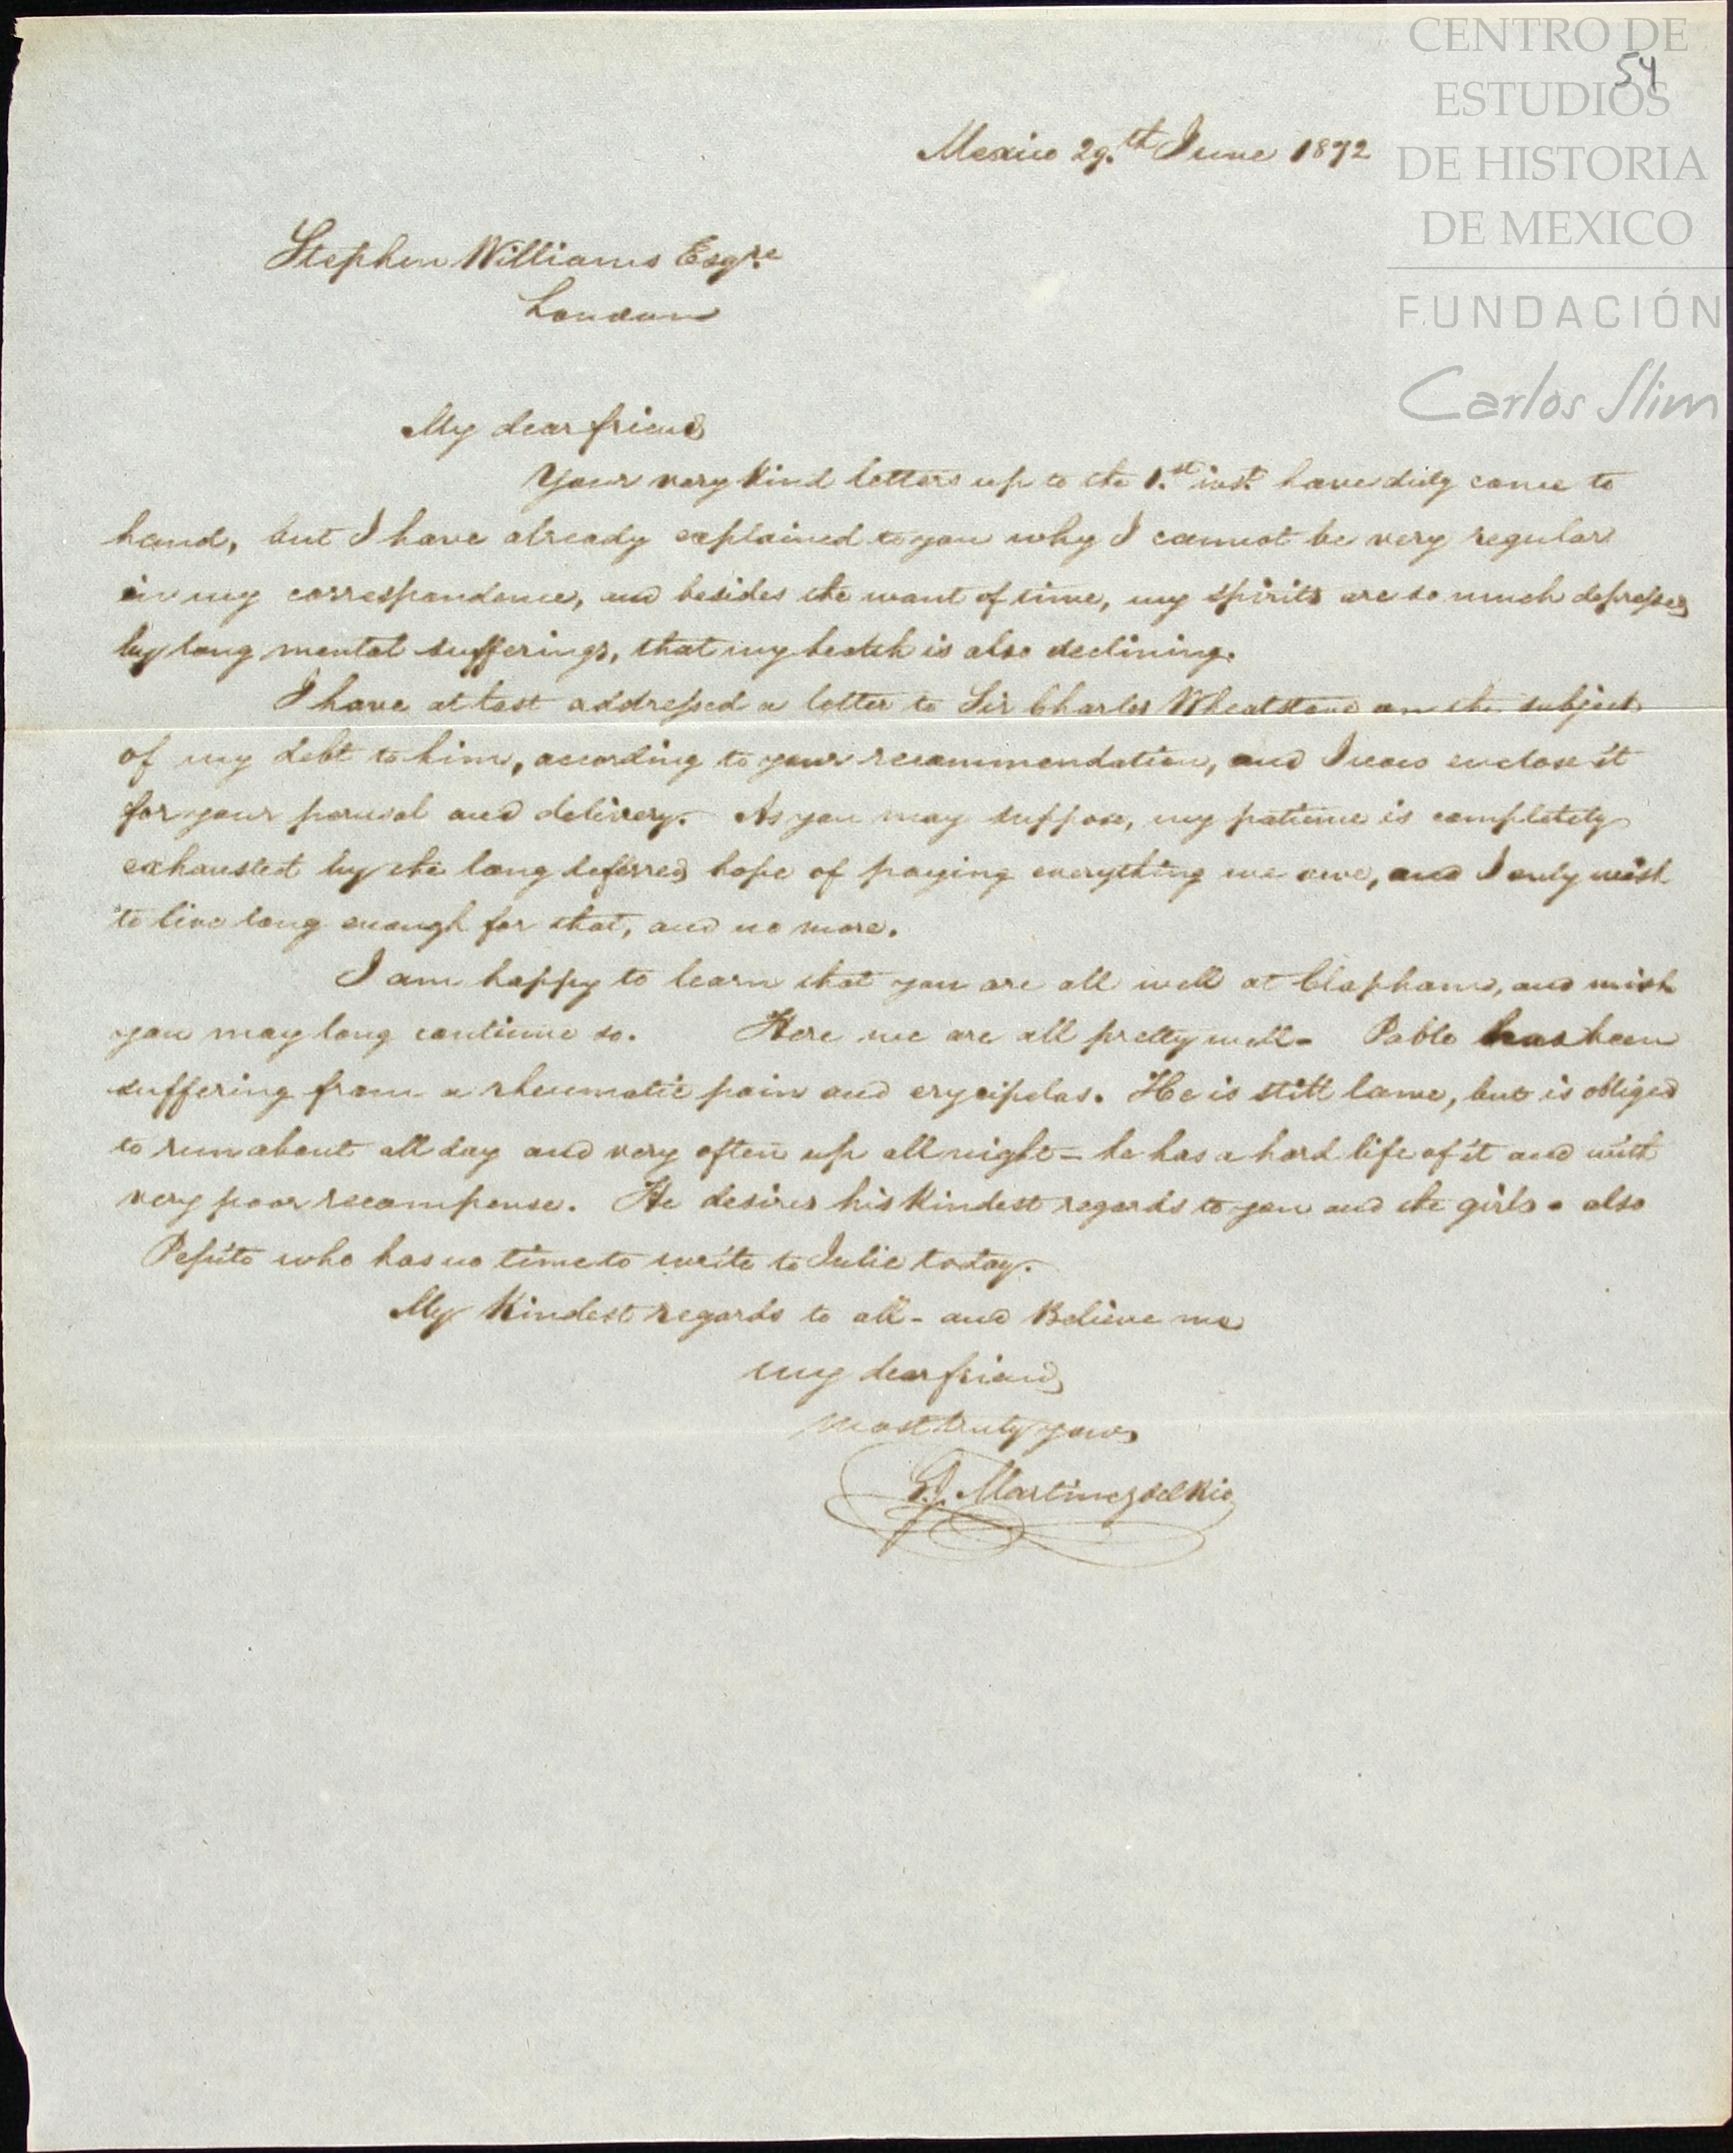 CENTRO DE
54
ESTUDIOS
DE HISTORIA
DE MEXICO
FUNDACIÓN
Carlos Slim
Mexico 29.th June 1872
Stephen Williams Esqre
London
My dear friend
Your very kind letters up to the 1.st inst. have duly come to
hand, but I have already explained to you why I cannot be very regular
in my correspondence, and besides the want of time, my spirits are so much depressed
by long mental sufferings, that my health is also declining.
I have at last addressed a letter to Sir Charles Wheatstone on the subject
of my debt to him, according to your recommendation, and I now enclose it
for your perusal and delivery. As you may suppose, my patience is completely
exhausted by the long deferred hope of paying everything we owe, and I only wish
to live long enough for that, and no more.
I am happy to learn that you are all well at Clapham, and wish
you may long continue so. Here we are all pretty well - Pablo has been
suffering from a rheumatic pain and erysipelas. He is still lame, but is obliged
to run about all day and very often up all night = he has a hard life of it and with
very poor recompense. He desires his kindest regards to you and the girls - also
Pepito who has no time to write to Julie today.
My kindest regards to all - and Believe me
my dear friend
most truly yours
G. Martinez del Rio